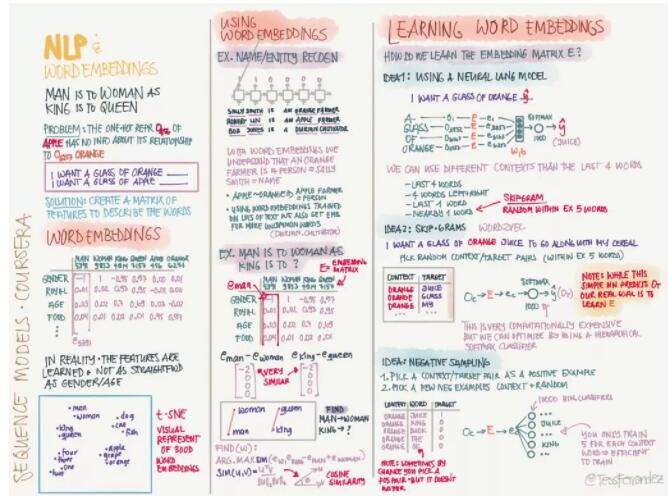 NLP &
WORD EMBEDDINGS
MAN IS TO WOMAN AS
KING IS TO QUEEN
PROBLEM: THE ONE-HOT REPR OF
APPLE HAS NO INFO ABOUT ITS RELATIONSHIP
TO ORANGE
I WANT A GLASS OF ORANGE ____
I WANT A GLASS OF APPLE ____
SOLUTION: CREATE A MATRIX OF
FEATURES TO DESCRIBE THE WORDS
WORD EMBEDDINGS
MAN WOMAN KING QUEEN APPLE ORANGE
GENDER
ROYAL
AGE
FOOD
IN REALITY THE FEATURES ARE
LEARNED & NOT AS STRAIGHTFWD
AS GENDER/AGE
man
woman
dog
cat
fish
king
queen
four
three
one
two
apple
grape
orange
t-SNE
VISUAL
REPRESENT
OF 300D
WORD
EMBEDDINGS
SEQUENCE MODELS · COURSERA
USING
WORD EMBEDDINGS
EX. NAME/ENTITY RECOGN
SALLY SMITH IS AN ORANGE FARMER
ROBERT LIN IS AN APPLE FARMER
BOB JONES IS A DURIAN CULTIVATOR
WITH WORD EMBEDDINGS WE
UNDERSTAND THAT AN ORANGE
FARMER IS A PERSON ⇒ SALLY
SMITH = NAME
APPLE ~ ORANGE ⇒ APPLE FARMER
= PERSON
USING WORD EMBEDDINGS TRAINED
ON LOTS OF TEXT WE ALSO GET EMB
FOR MORE UNCOMMON WORDS
(DURIAN, CULTIVATOR)
EX. MAN IS TO WOMAN AS
KING IS TO ?
EMBEDDING
MATRIX
e man
MAN WOMAN KING QUEEN
GENDER
ROYAL
AGE
FOOD
e man - e woman e king - e queen
VERY
SIMILAR
woman
man
queen
king
FIND
MAN→WOMAN
KING→?
FIND(w):
COSINE
SIMILARITY
LEARNING WORD EMBEDDINGS
HOW DO WE LEARN THE EMBEDDING MATRIX E?
IDEA 1: USING A NEURAL LANG MODEL
I WANT A GLASS OF ORANGE ŷ
A
GLASS
OF
ORANGE
SOFTMAX
ŷ
(JUICE)
WE CAN USE DIFFERENT CONTEXTS THAN THE LAST 4 WORDS
- LAST 4 WORDS
- 4 WORDS LEFT/RIGHT
- LAST 1 WORD
- NEARBY 1 WORD
SKIPGRAM
RANDOM WITHIN EX 5 WORDS
IDEA 2: SKIP-GRAMS WORD2VEC
I WANT A GLASS OF ORANGE JUICE TO GO ALONG WITH MY CEREAL
PICK RANDOM CONTEXT/TARGET PAIRS (WITHIN EX 5 WORDS)
CONTEXT TARGET
ORANGE JUICE
ORANGE GLASS
ORANGE MY
...
SOFTMAX
NOTE: WHILE THIS
SIMPLE NN PREDICTS
OUR REAL GOAL IS TO
LEARN E
THIS IS VERY COMPUTATIONALLY EXPENSIVE
BUT WE CAN OPTIMIZE BY USING A HIERARCHICAL
SOFTMAX CLASSIFIER
IDEA: NEGATIVE SAMPLING
1. PICK A CONTEXT/TARGET PAIR AS A POSITIVE EXAMPLE
2. PICK A FEW NEG EXAMPLES CONTEXT + RANDOM
CONTEXT WORD TARGET
ORANGE JUICE 1
ORANGE KING 0
ORANGE BOOK 0
ORANGE THE 0
ORANGE OF 0
NOTE: SOMETIMES BY
CHANCE YOU PICK A
POS PAIR - BUT IT DOESN'T
MATTER
JUICE
KING
YOU ONLY TRAIN
5 FOR EACH CONTEXT
WORD ⇒ EFFICIENT
TO TRAIN
@TessFerrandez